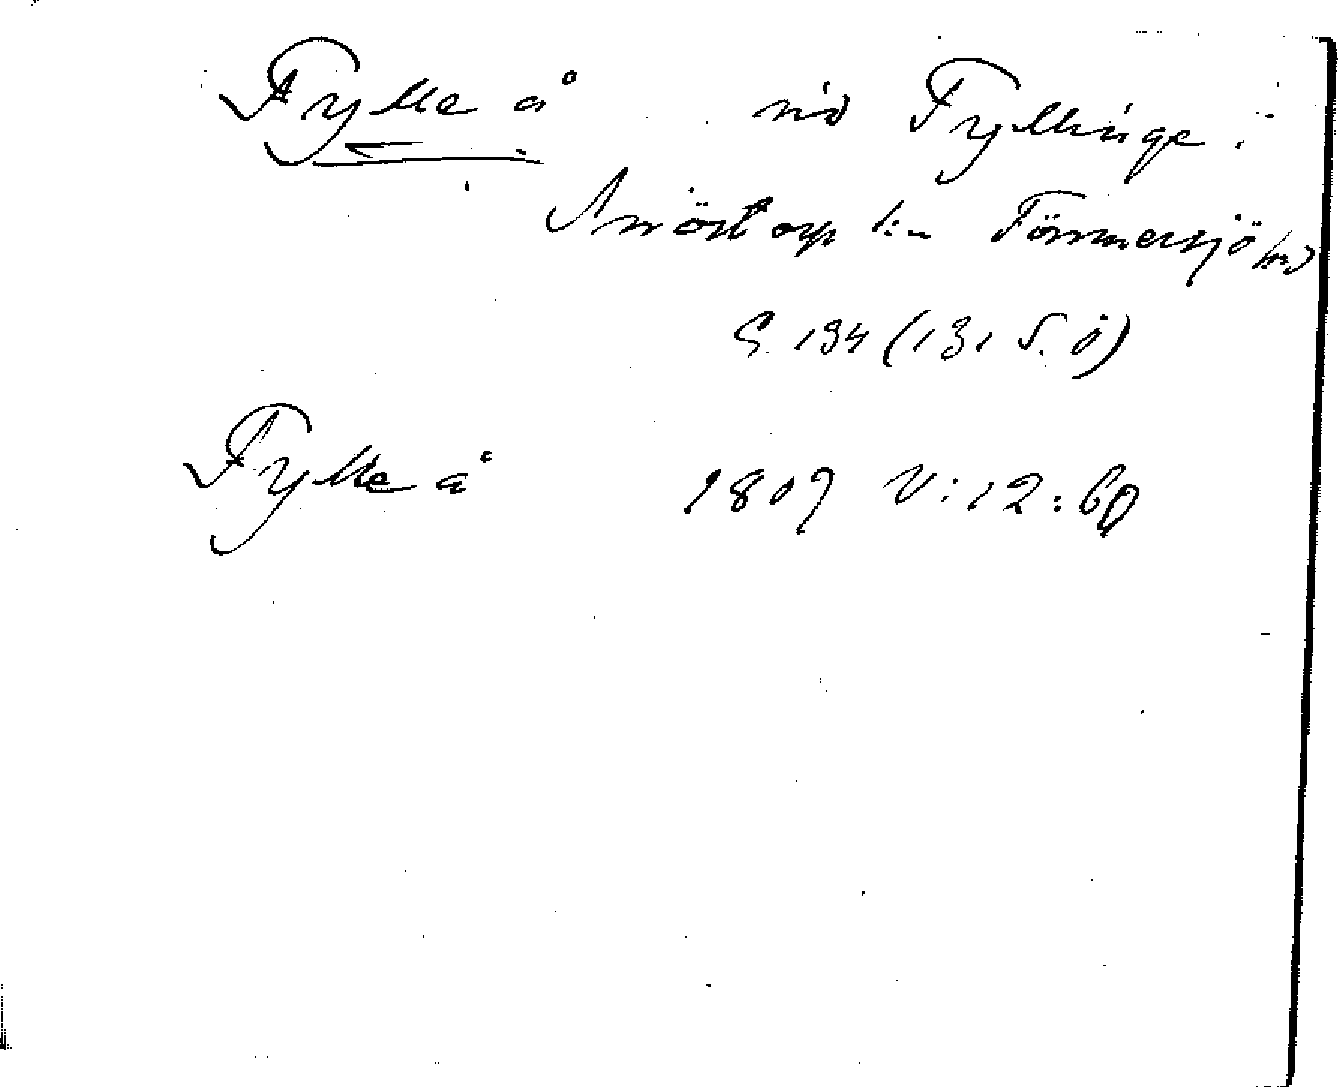 Fylle å vid Fyllinge i
Snöstorp sn Tönnersjö hd
S. 134 (131 S. ö)
Fylle å 1809 V:12:60